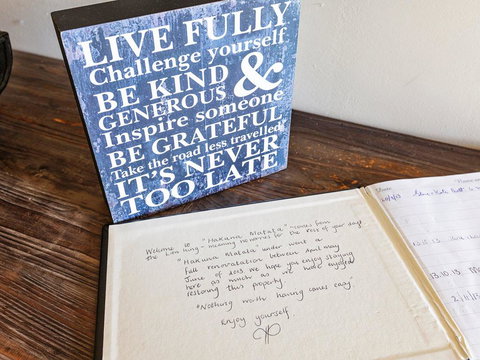 LIVE FULLY
Challenge yourself
BE KIND &
GENEROUS
Inspire someone
BE GRATEFUL
Take the road less travelled
IT'S NEVER
TOO LATE
Welcome to "Hakuna Matata" - comes from
the Lion King - meaning no worries for the rest of your days
"Hakuna Matata" under went a
full renovatation between April/May
June of 2013 we hope you enjoy staying
here as much as we have enjoyed
restoring this property.
"Nothing worth having comes easy."
Enjoy yourself.
13.10.13
2/11/13